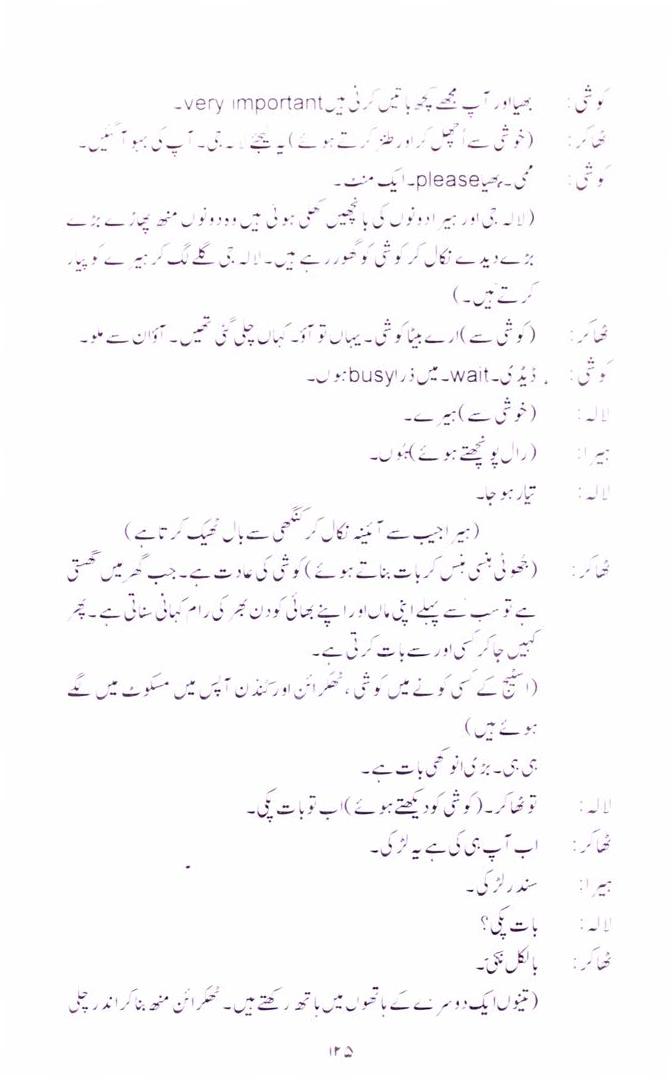 کوشی: بھیا اور آپ مجھے کچھ باتیں کرنی ہیں very important۔
ٹھاکر: (خوشی سے اُچھل کر اور طنز کرتے ہوئے) یہ لیجئے لالہ جی۔ آپ کی بہو آ گئیں۔
کوشی: ممی۔ بھیا please۔ ایک منٹ۔
(لالہ جی اور ہیرا دونوں کی بانچھیں کھلی ہوئی ہیں وہ دونوں منھ پھاڑے بڑے
بڑے دیدے نکال کر کوشی کو گھور رہے ہیں۔ لالہ جی گلے لگ کر ہیرے کو پیار
کرتے ہیں۔)
ٹھاکر: (کوشی سے) ارے بیٹا کوشی۔ یہاں تو آؤ۔ کہاں چلی گئی تھیں۔ آؤ ان سے ملو۔
کوشی: ڈیڈی۔ wait۔ میں ذرا busy ہوں۔
لالہ: (خوشی سے) ہیرے۔
ہیرا: (رال پونچھتے ہوئے) ہُوں۔
لالہ: تیار ہو جا۔
(ہیرا جیب سے آئینہ نکال کر کنگھی سے بال ٹھیک کرتا ہے)
ٹھاکر: (جھوٹی ہنسی ہنس کر بات بناتے ہوئے) کوشی کی عادت ہے۔ جب گھر میں گھستی
ہے تو سب سے پہلے اپنی ماں اور اپنے بھائی کو دن بھر کی رام کہانی سناتی ہے۔ پھر
کہیں جا کر کسی اور سے بات کرتی ہے۔
(اسٹیج کے کسی کونے میں کوشی، ٹھکرائن اور کندن آپس میں مسکوٹ میں لگے
ہوئے ہیں)
ہی ہی۔ بڑی انوکھی بات ہے۔
لالہ: تو ٹھاکر۔ (کوشی کو دیکھتے ہوئے) اب تو بات پکی۔
ٹھاکر: اب آپ ہی کی ہے یہ لڑکی۔
ہیرا: سندر لڑکی۔
لالہ: بات پکی؟
ٹھاکر: بالکل پکی۔
(تینوں ایک دوسرے کے ہاتھوں میں ہاتھ رکھتے ہیں۔ ٹھکرائن منھ بنا کر اندر چلی
۱۲۵